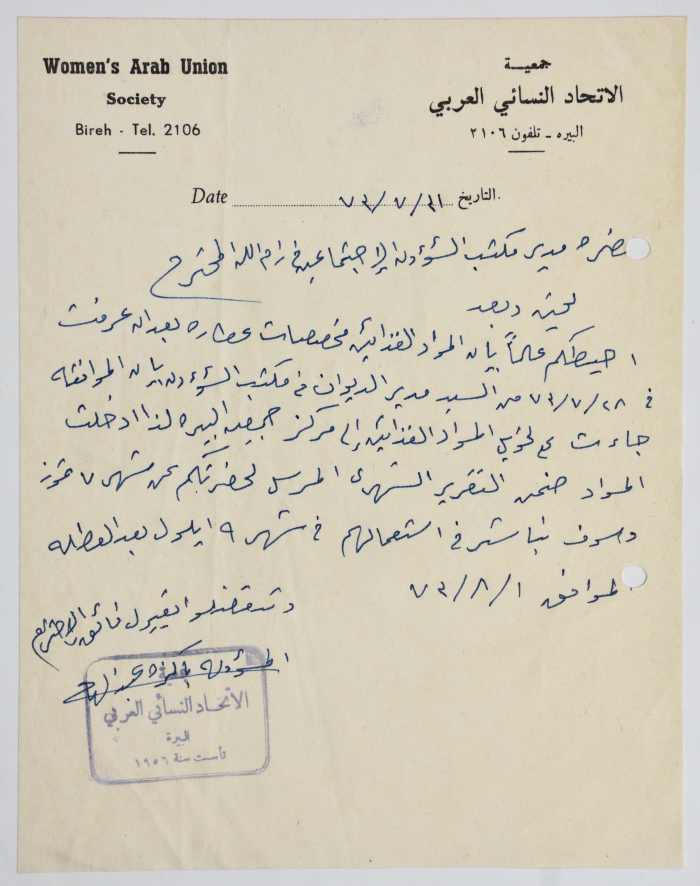 Women's Arab Union
Society
Bireh - Tel. 2106
جمعيـــة
الاتحاد النسائي العربي
البيره ـ تلفون ٢١٠٦
Date التاريخ ٧٣/٧/٣١
حضرة مدير مكتب الشؤون الاجتماعيه في رام الله المحترم
تحيه وبعد
احيطكم علماً بان المواد الغذائيه مخصصات عطاره بعد ان عرفت
في ٧٣/٧/٢٨ من السيد مدير الديوان في مكتب الشؤون بان الموافقه
جاءت على تحويل المواد الغذائيه إلى مركز جمعيه البيره لذا ادخلت
المواد ضمن التقرير الشهري المرسل لحضرتكم عن شهر ٧ تموز
وسوف نباشر في استعمالهم في شهر ٩ ايلول بعد العطله
الموافق ٧٣/٨/١
وتفضلوا بقبول فائق الاحترام
المسؤوله
جمعية
الاتحاد النسائي العربي
البيرة
تأسست سنة ١٩٥٦